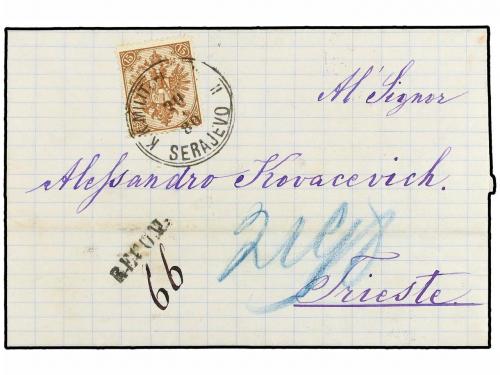 15 15
K.K. MILIT. II
SERAJEVO
80
Al' Signor
Alessandro Kovacevich.
RECOM.
66
Trieste.